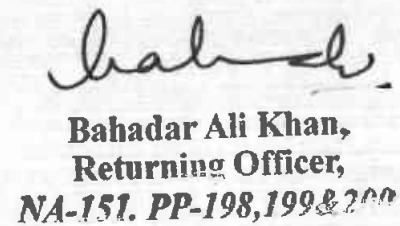 Bahadar Ali Khan,
Returning Officer,
NA-151. PP-198,199&200